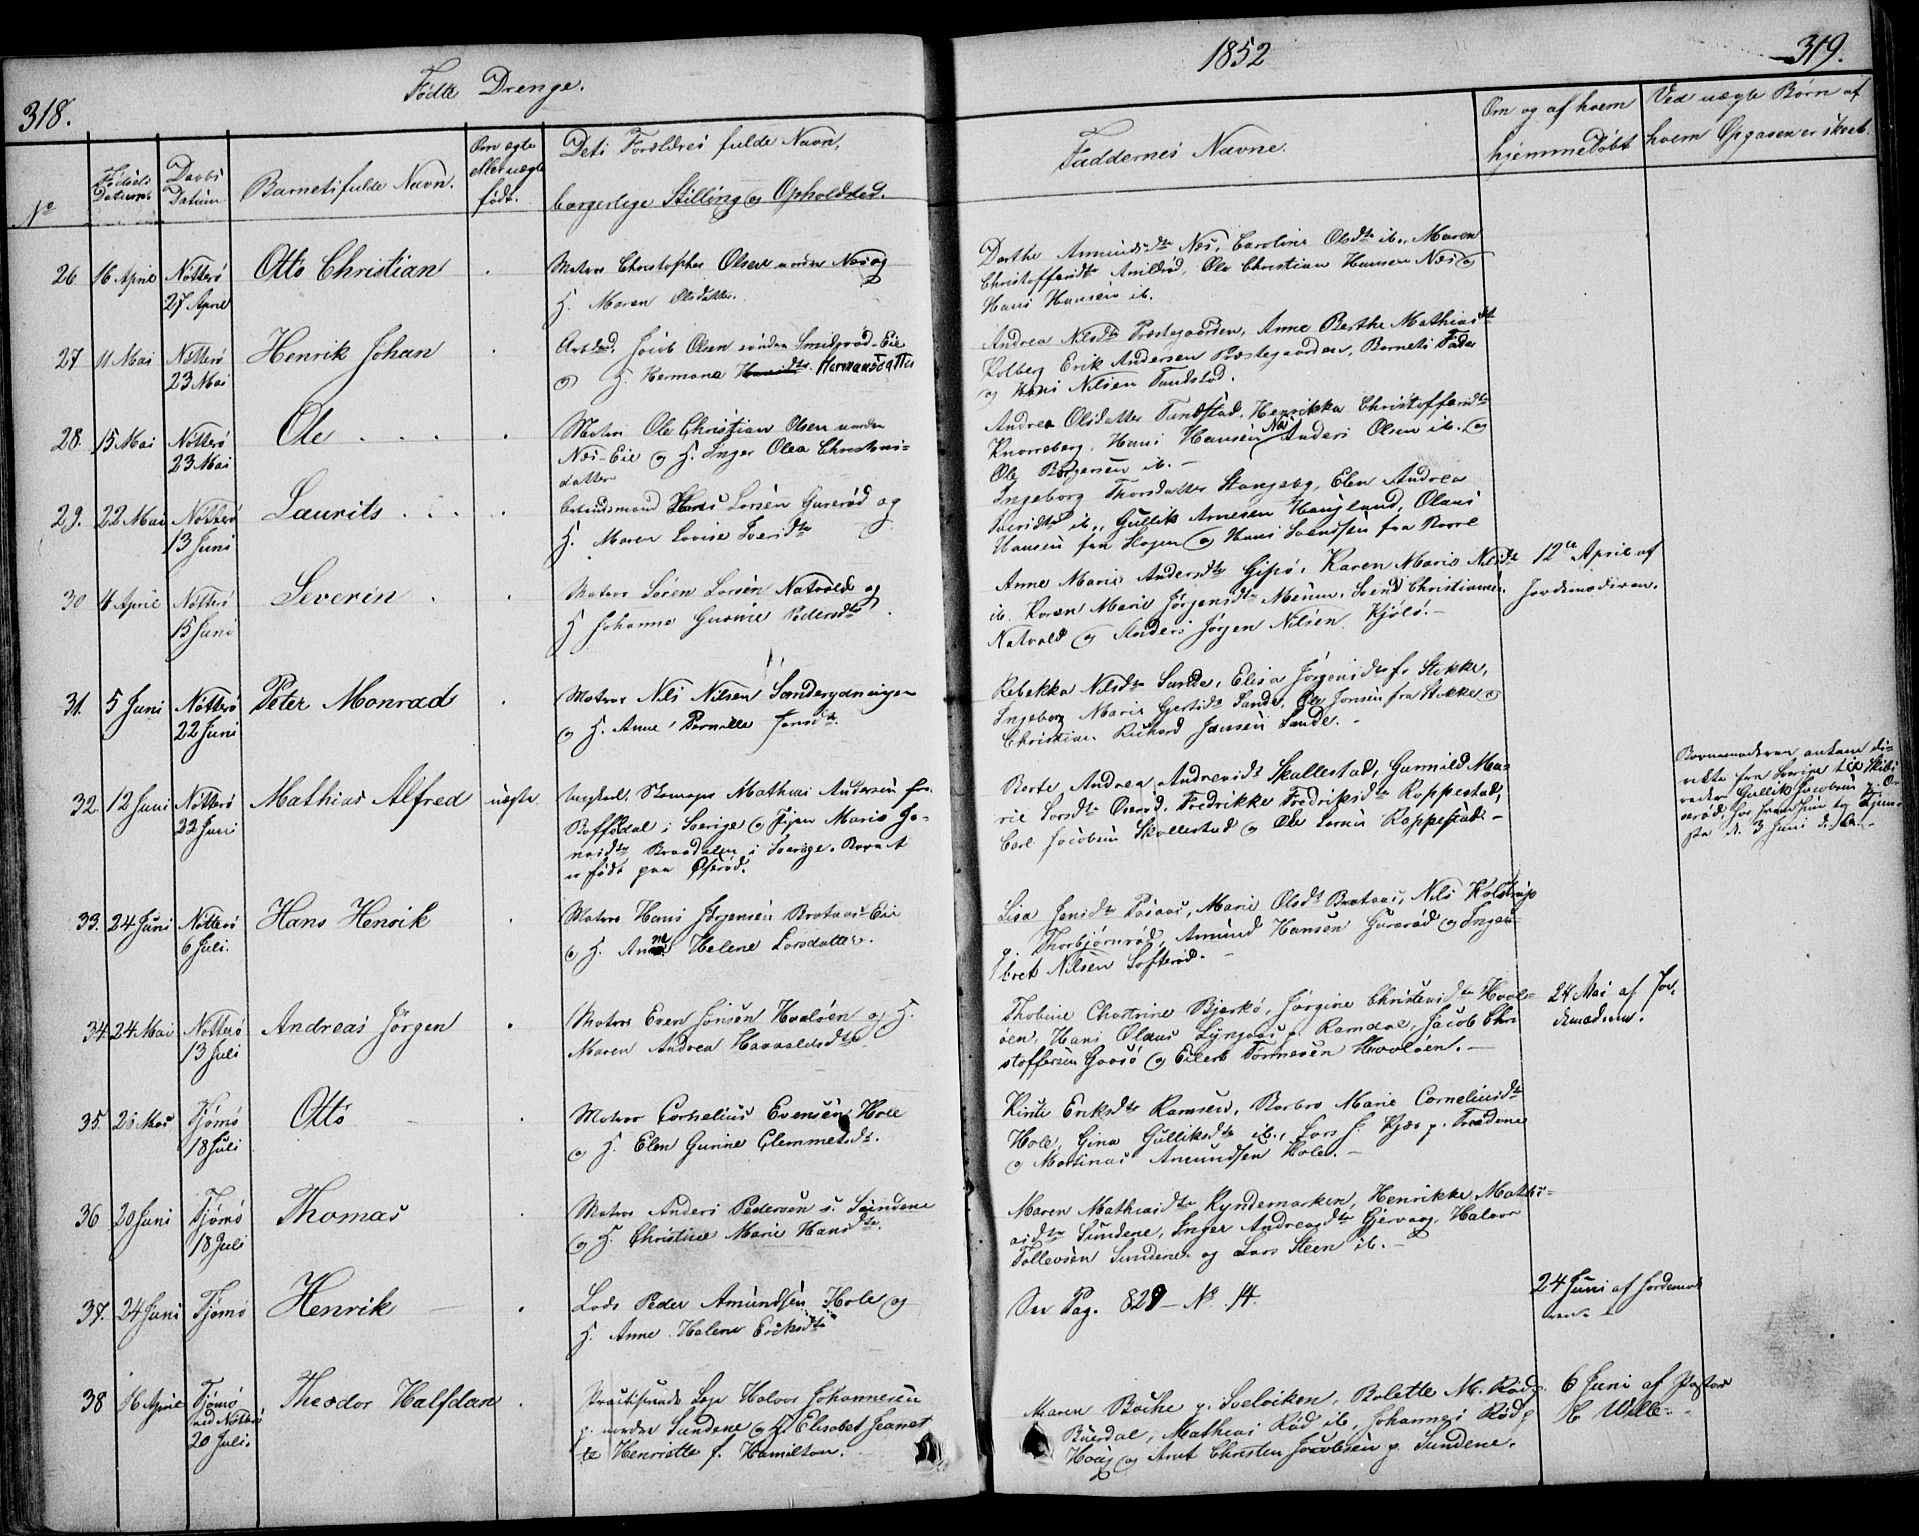 318.
Fødte Drenge.
1852
319.
No
Fødsels Datum.
Daabs Datum
Barnets fulde Navn.
Om ægte eller uægte født.
Dets Forældres fulde Navn,
borgerlige Stilling og Opholdsted.
Faddernes Navne.
Om og af hvem
hjemmedøbt
Ved uægte Børn af
hvem Opgaven er skeet.
26 16 April Nøtterø 27 April Otto Christian
Matros Christopher Olsen nordre Næs og
H. Maren Olsdatter.
Dorthe Amundsdtr Næs, Caroline Olsdtr ib., Maren
Christoffersdtr Arildrød, Ole Christian Hansen Næs og
Hans Hansen ib.
27 11 Mai Nøtterø 23 Mai Henrik Johan
Arbmd. Jacob Olsen søndre Smidsrød-Eie
og H. Hermana Hermansdatter
Andrea Nilsdtr Præstegaarden, Anne Berthe Mathiasdtr
Kolberg Erik Andersen Præstegaarden, Barnets Fader
og Hans Nilsen Tandstad.
28. 15 Mai Nøtterø 23 Mai Ole
Matros Ole Christian Olsen nordre
Næs-Eie og H. Inger Olea Christens-
datter
Andrea Olsdatter Tandstad, Henrikka Christoffersdtr
Knarreberg, Hans Hansen Næs Anders Olsen ib. og
Ole Borgersen ib. -
29. 22 Mai Nøtterø 13 Juni Laurits
Hans Larsen Gunerød og
H. Maren Lovise Iversdtr
Ingeborg Thorsdatter Stangeby, Elen Andrea
Iversdtr ib., Gullik Arnesen Haugland, Olaus
Hansen fra Slagen og Hans Svendsen fra Borre
30 4 April Nøtterø 15 Juni Severin
Matros Søren Larsen Natvold og
H Johanne Gurine Pedersdtr
Anne Marie Andersdtr Gipø, Karen Marie Nilsdtr
ib. Karen Marie Jørgensdtr Meum, Svend Christiansen
Natvold og Anders Jørgen Nilsen Kjølø.-
12te April af
Jordemoderen.
31. 5 Juni Nøtterø 22 Juni Peter Monrad
Matros Nils Nilsen Sanderydningen
og H. Anne Pernille Jonsdtr.
Rebekka Nilsdtr Sande, Elisa Jørgensdtr fr Stokke,
Ingeborg Marie Gjertsdtr Sande, Ole Jonsen fra Stokke og
Christian Richard Jansen Sande. -
32. 12 Juni Nøtterø 22 Juni Mathias Alfred uægte
Ungkarl, Skomager Mathias Andersen fr.
Boffsdal i Sverige og Pigen Maria Jo-
nasdtr Braadalen i Sverige. Barnet
er født paa Øserød.
Berte Andrea Andreasdtr Skallestad, Gunnild Ma-
rie Larsdtr Øserød, Fredrikke Fredriksdtr Rappestad,
Carl Jacobsen Skallestad og Ole Larsen Rappestad.-
Barnemoderen ankom di-
rekte fra Sverige til Skibs
reder Gullik Jacobsen p. Ø-
serød, for hvem hun tog Tjene-
ste d. 3 Juni d. A. -
33. 24 Juni Nøtterø 6 Juli. Hans Henrik
Matros Hans Jørgensen Brataas-Eie
og H. Anne Helene Larsdatter.
Lisa Jensdtr Raaaas, Marie Olsdtr Brataas, Nils Kolstrup
p. Thorbjørnrød, Amund Hansen Gunerød og Inge-
bret Nilsen Softerød. -
34. 24. Mai Nøtterø 13 Juli Andreas Jørgen
Matros Even Jonsen Hvaløen og H.
Maren Andrea Haavaldsdtr
Thobine Chatrine Bjerkø, Jørgine Christensdtr Hval-
øen, Hans Olaus Lyngaas p. Ramdal, Jacob Chri
stoffersen Gaasø og Eilert Tørmesen Hvaløen. -
24 Mai af Jor-
demoderen.
35. 26 Mai Tjømø 18 Juli Otto
Matros Cornelius Evensen Hole
og H. Elen Gurine Clemmetsdtr.
Kirsti Eriksdtr Ramsen, Barbro Marie Corneliusdtr
Hole, Gina Gulliksdtr ib., Lars J. Kjær p. Treidene
og Martinus Amundsen Hole.-
36 20 Juni Tjømø 18 Juli Thomas
Matros Anders Pedersen s. Sundene
og H. Christine Marie Hansdtr.
Maren Mathiasdtr Ryndemarken, Henrikke Mathi-
asdtr Sundene, Inger Andreasdtr Gjervaag, Halvor
Tollevsen Sundene og Lars Steen ib. -
37. 24 Juni Tjømø Henrik
Lods Peder Amundsen Hole og
H. Anne Helene Eriksdtr
See Pag. 829 - No 14.
24 Juni af Jordemode
ren. -
38 16 April Tjømø ved Nøtterø 20 Juli. Theodor Halfdan
Practiserende Læge Halvor Johannesen
p. nordre Sundene og H. Elisabet Jeanet
te Henriette f. Hamilton. -
Maren Bache p. Svelviken, Bolette M. Rød p.
Buerdal, Mathias Rød ib, Johannes Rød p
Houg og Arnt Christen Jacobsen p. Sundene.
6 Juni af Pastor
H Wille. -